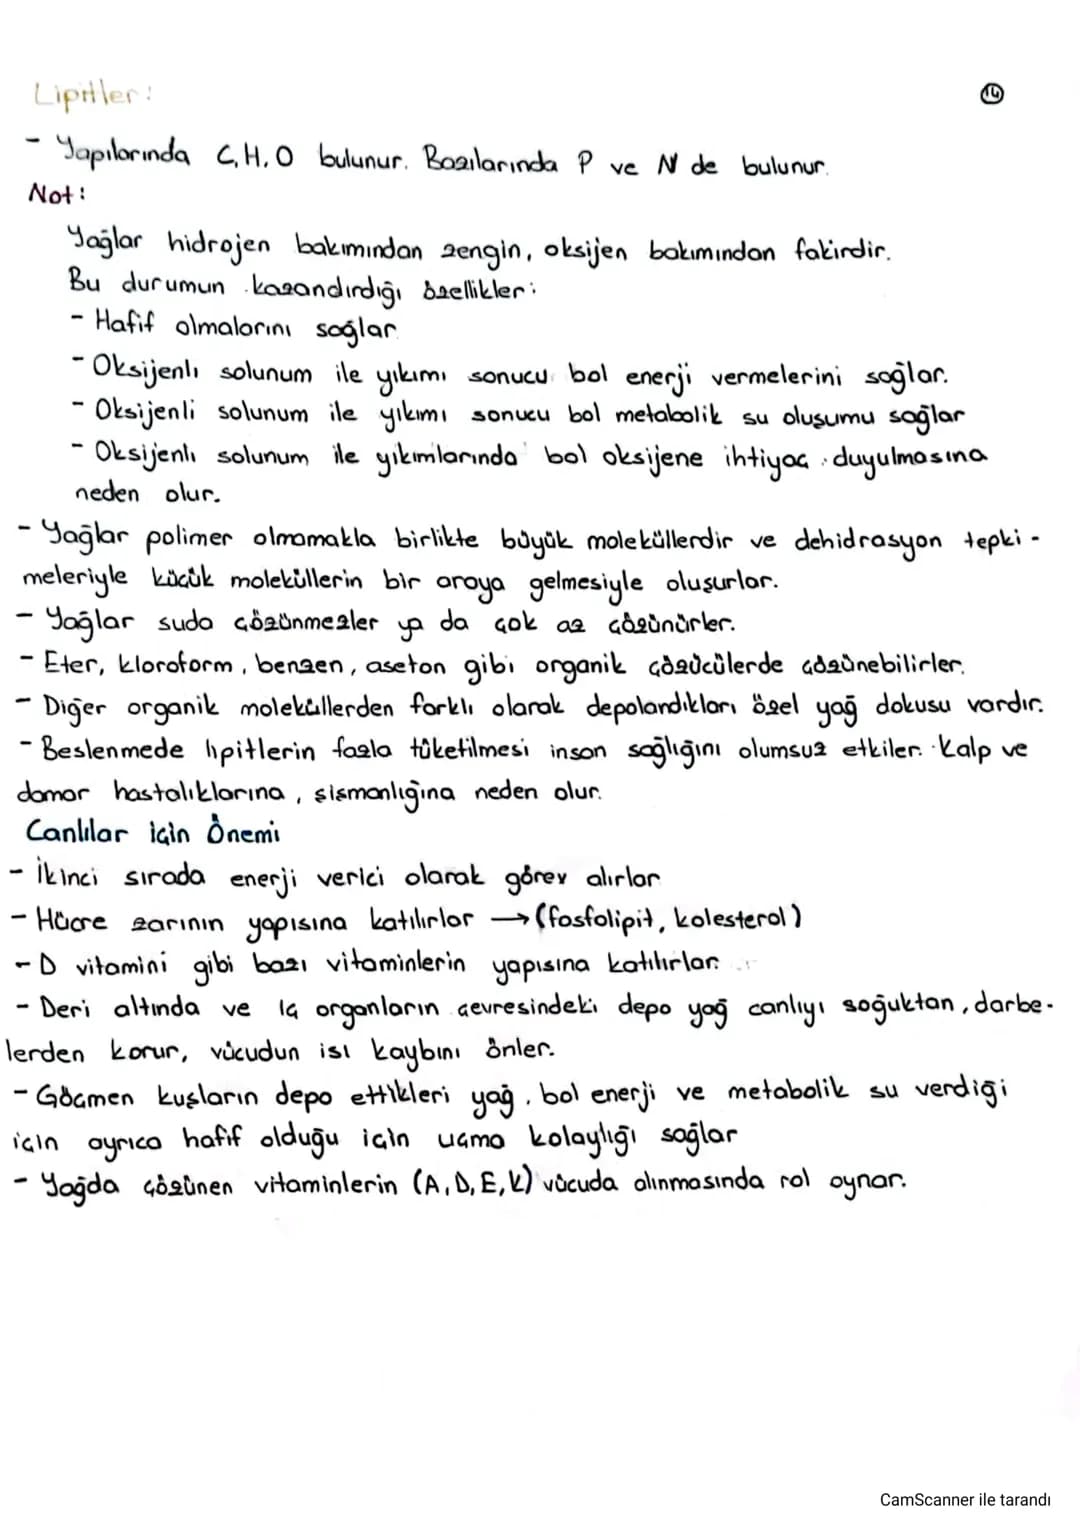 Lipitler:
14
- Yapılarında C, H, O bulunur. Bazılarında P ve N de bulunur.
Not:
Yağlar hidrojen bakımından zengin, oksijen bakımından fakirdir.
Bu durumun kazandırdığı özellikler:
- Hafif olmalarını sağlar
- Oksijenli solunum ile yıkımı sonucu bol enerji vermelerini sağlar.
- Oksijenli solunum ile yıkımı sonucu bol metabolik su oluşumu sağlar
- Oksijenli solunum ile yıkımlarında bol oksijene ihtiyaç duyulmasına
neden olur.
- Yağlar polimer olmamakla birlikte büyük moleküllerdir ve dehidrasyon tepki-
meleriyle küçük moleküllerin bir araya gelmesiyle oluşurlar.
- Yağlar suda çözünmezler ya da çok az çözünürler.
- Eter, kloroform, benzen, aseton gibi organik çözücülerde çözünebilirler.
- Diğer organik moleküllerden farklı olarak depolandıkları özel yağ dokusu vardır.
- Beslenmede lipitlerin fazla tüketilmesi insan sağlığını olumsuz etkiler. Kalp ve
damar hastalıklarına, şişmanlığına neden olur.
Canlılar için Önemi
- İkinci sırada enerji verici olarak görev alırlar
- Hücre zarının yapısına katılırlar → (fosfolipit, kolesterol)
- D vitamini gibi bazı vitaminlerin yapısına katılırlar.
- Deri altında ve iç organların çevresindeki depo yağ canlıyı soğuktan, darbe-
lerden korur, vücudun ısı kaybını önler.
- Göçmen kuşların depo ettikleri yağ, bol enerji ve metabolik su verdiği
için ayrıca hafif olduğu için uçma kolaylığı sağlar
- Yağda çözünen vitaminlerin (A, D, E, K) vücuda alınmasında rol oynar.
CamScanner ile tarandı